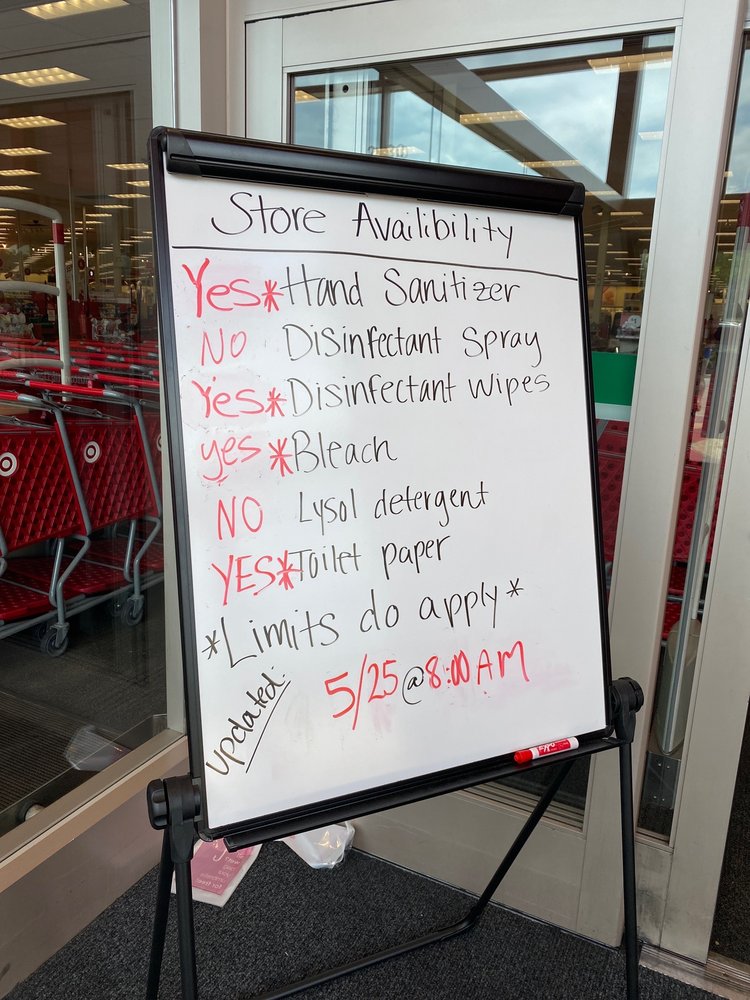 Store Availibility
Yes* Hand Sanitizer
NO Disinfectant Spray
Yes* Disinfectant Wipes
yes *Bleach
NO Lysol detergent
YES* Toilet paper
*Limits do apply*
Updated: 5/25 @ 8:00 AM
EXPO